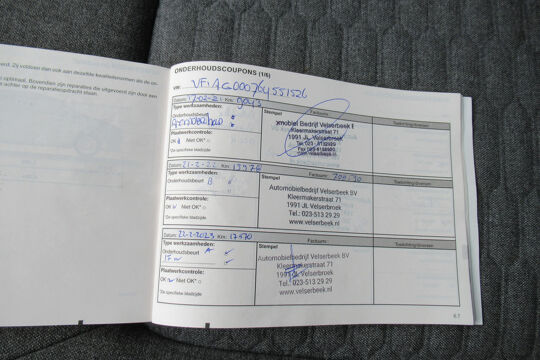 erd. Zij voldoen dan ook aan dezelfde kwaliteitsnormen als de on-
optimaal. Bovendien zijn reparaties die uitgevoerd zijn door een
achter op de reparatieopdracht staan.
ONDERHOUDSCOUPONS (1/6)
VIN:
Datum: Km:
Type werkzaamheden:
Onderhoudsbeurt
Plaatwerkcontrole:
OK Niet OK*
*Zie specifieke bladzijde
Stempel
Automobiel Bedrijf Velserbeek
Kleermakerstraat 71
1991 JL Velserbroek
Toelichting/diversen
Datum: 21-2-22 Km:
Factuurnr.:
Type werkzaamheden:
Onderhoudsbeurt B
Plaatwerkcontrole:
OK Niet OK*
*Zie specifieke bladzijde
Stempel
Automobielbedrijf Velserbeek BV
Kleermakerstraat 71
1991 JL Velserbroek
Tel.: 023-513 29 29
www.velserbeek.nl
Toelichting/diversen
Datum: 22-2-2023 Km: 17570
Factuurnr.:
Type werkzaamheden:
Onderhoudsbeurt A
Plaatwerkcontrole:
OK Niet OK*
*Zie specifieke bladzijde
Stempel
Automobielbedrijf Velserbeek BV
Kleermakerstraat 71
1991 JL Velserbroek
Tel.: 023-513 29 29
www.velserbeek.nl
Toelichting/diversen
6.7